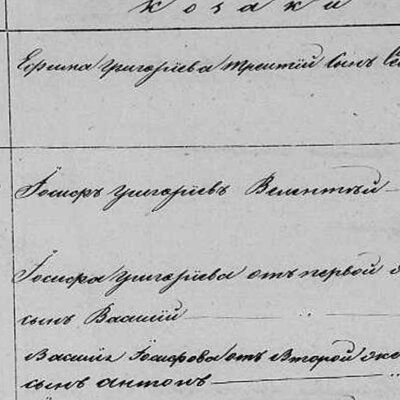 козаки
Ефима Григорïева третïй сынъ
Iосифъ Григорïевъ Велентïй
Iосифа Григорïева отъ первой
сынъ Василïй
Василïя Iосифова отъ второй
сынъ Антонъ